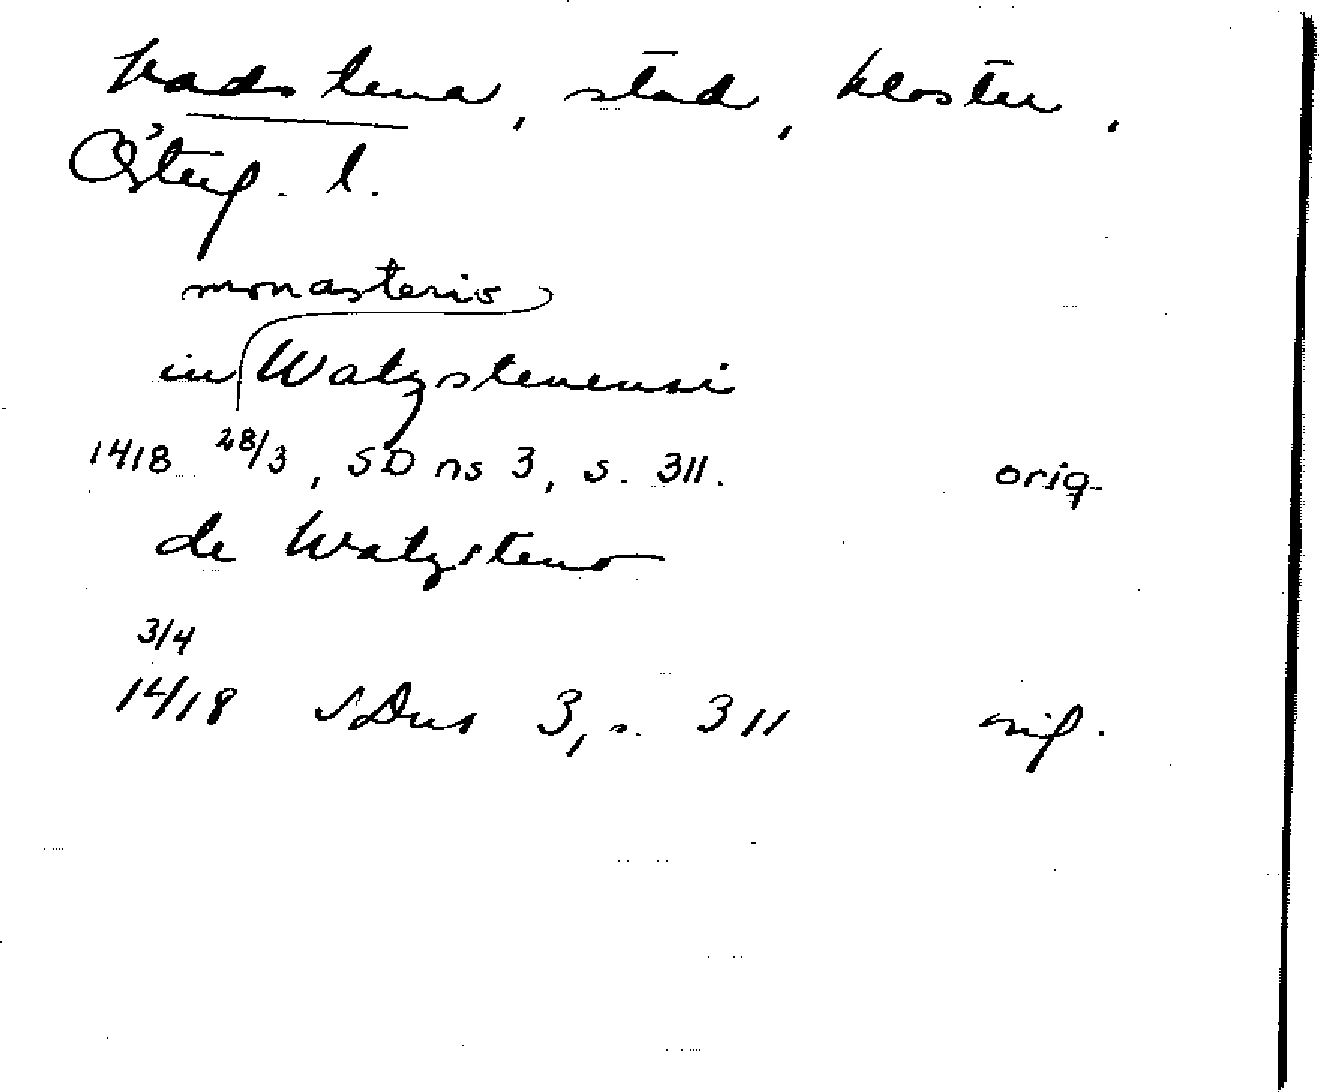 Vadstena, stad, kloster,
Österg. l.
monasterio
in Watzstenensi
1418 28/3, SD ns 3, s. 311. orig
de Watzsteno
3/4
1418 SDns 3, s. 311 orig.